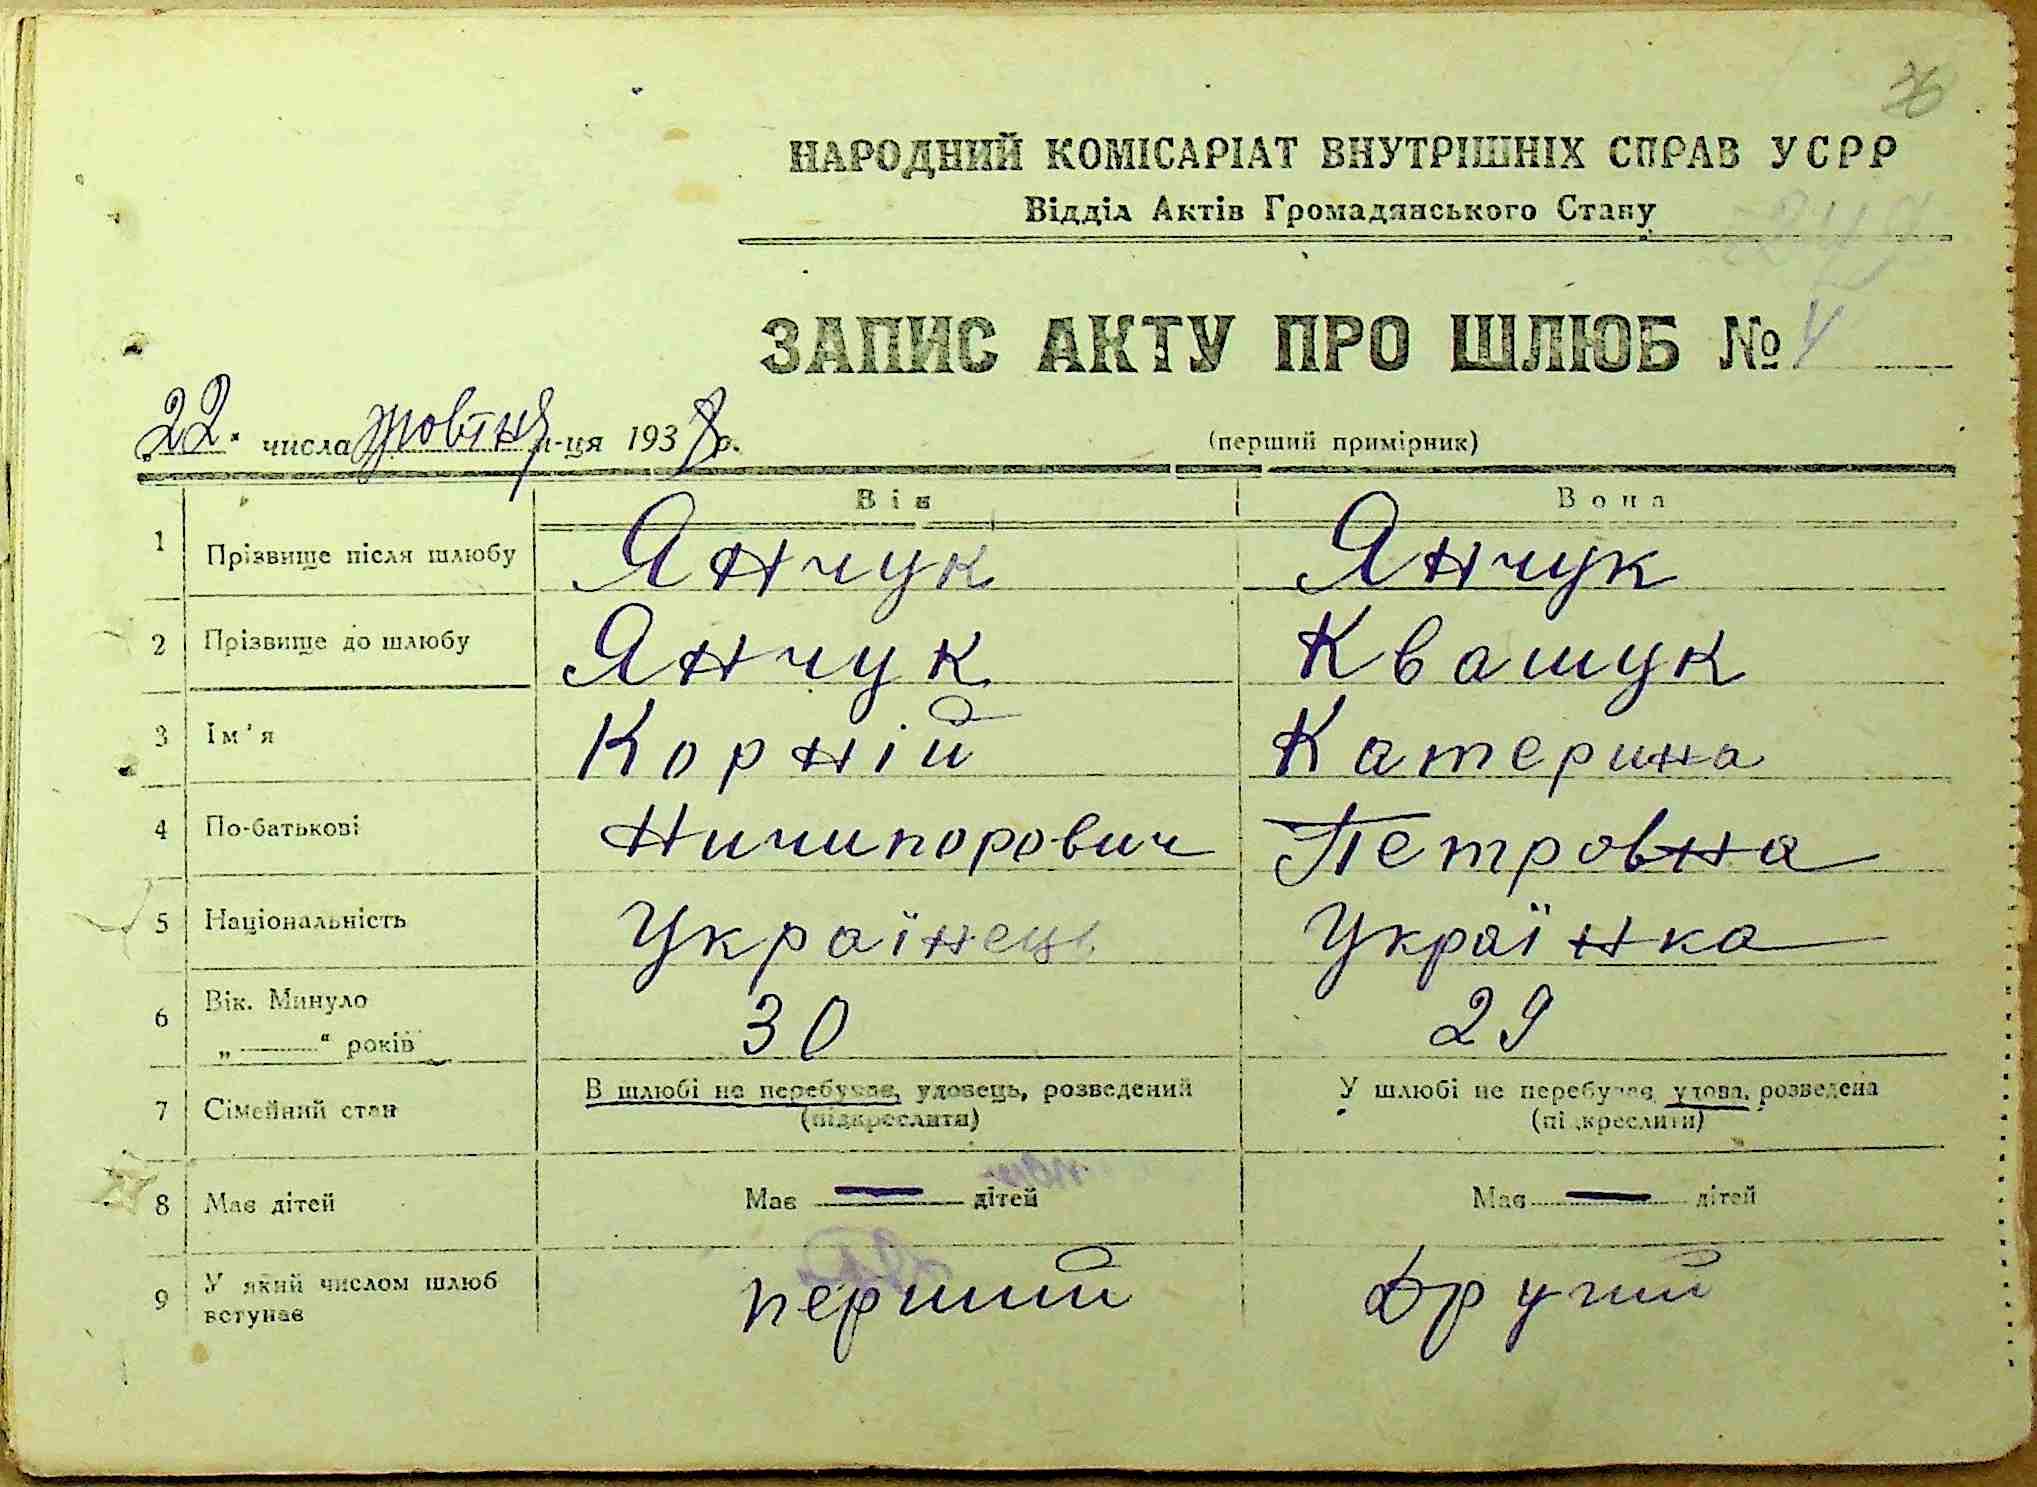 36
НАРОДНИЙ КОМІСАРІАТ ВНУТРІШНІХ СПРАВ УСРР
Відділ Актів Громадянського Стану
ЗАПИС АКТУ ПРО ШЛЮБ № 4
„22“ числа жовтня м-ця 1938 р.
(перший примірник)
Він Вона
1 Прізвище після шлюбу Янчук Янчук
2 Прізвище до шлюбу Янчук Квашук
3 Ім'я Корній Катерина
4 По-батькові Ничипорович Петровна
5 Національність Українець Українка
6 Вік. Минуло 30 29
„ “ років
7 Сімейний стан В шлюбі не перебуває, удовець, розведений У шлюбі не перебуває, удова, розведена
(підкреслити) (підкреслити)
8 Має дітей Має — дітей Має — дітей
9 У який числом шлюб вступає перший другий